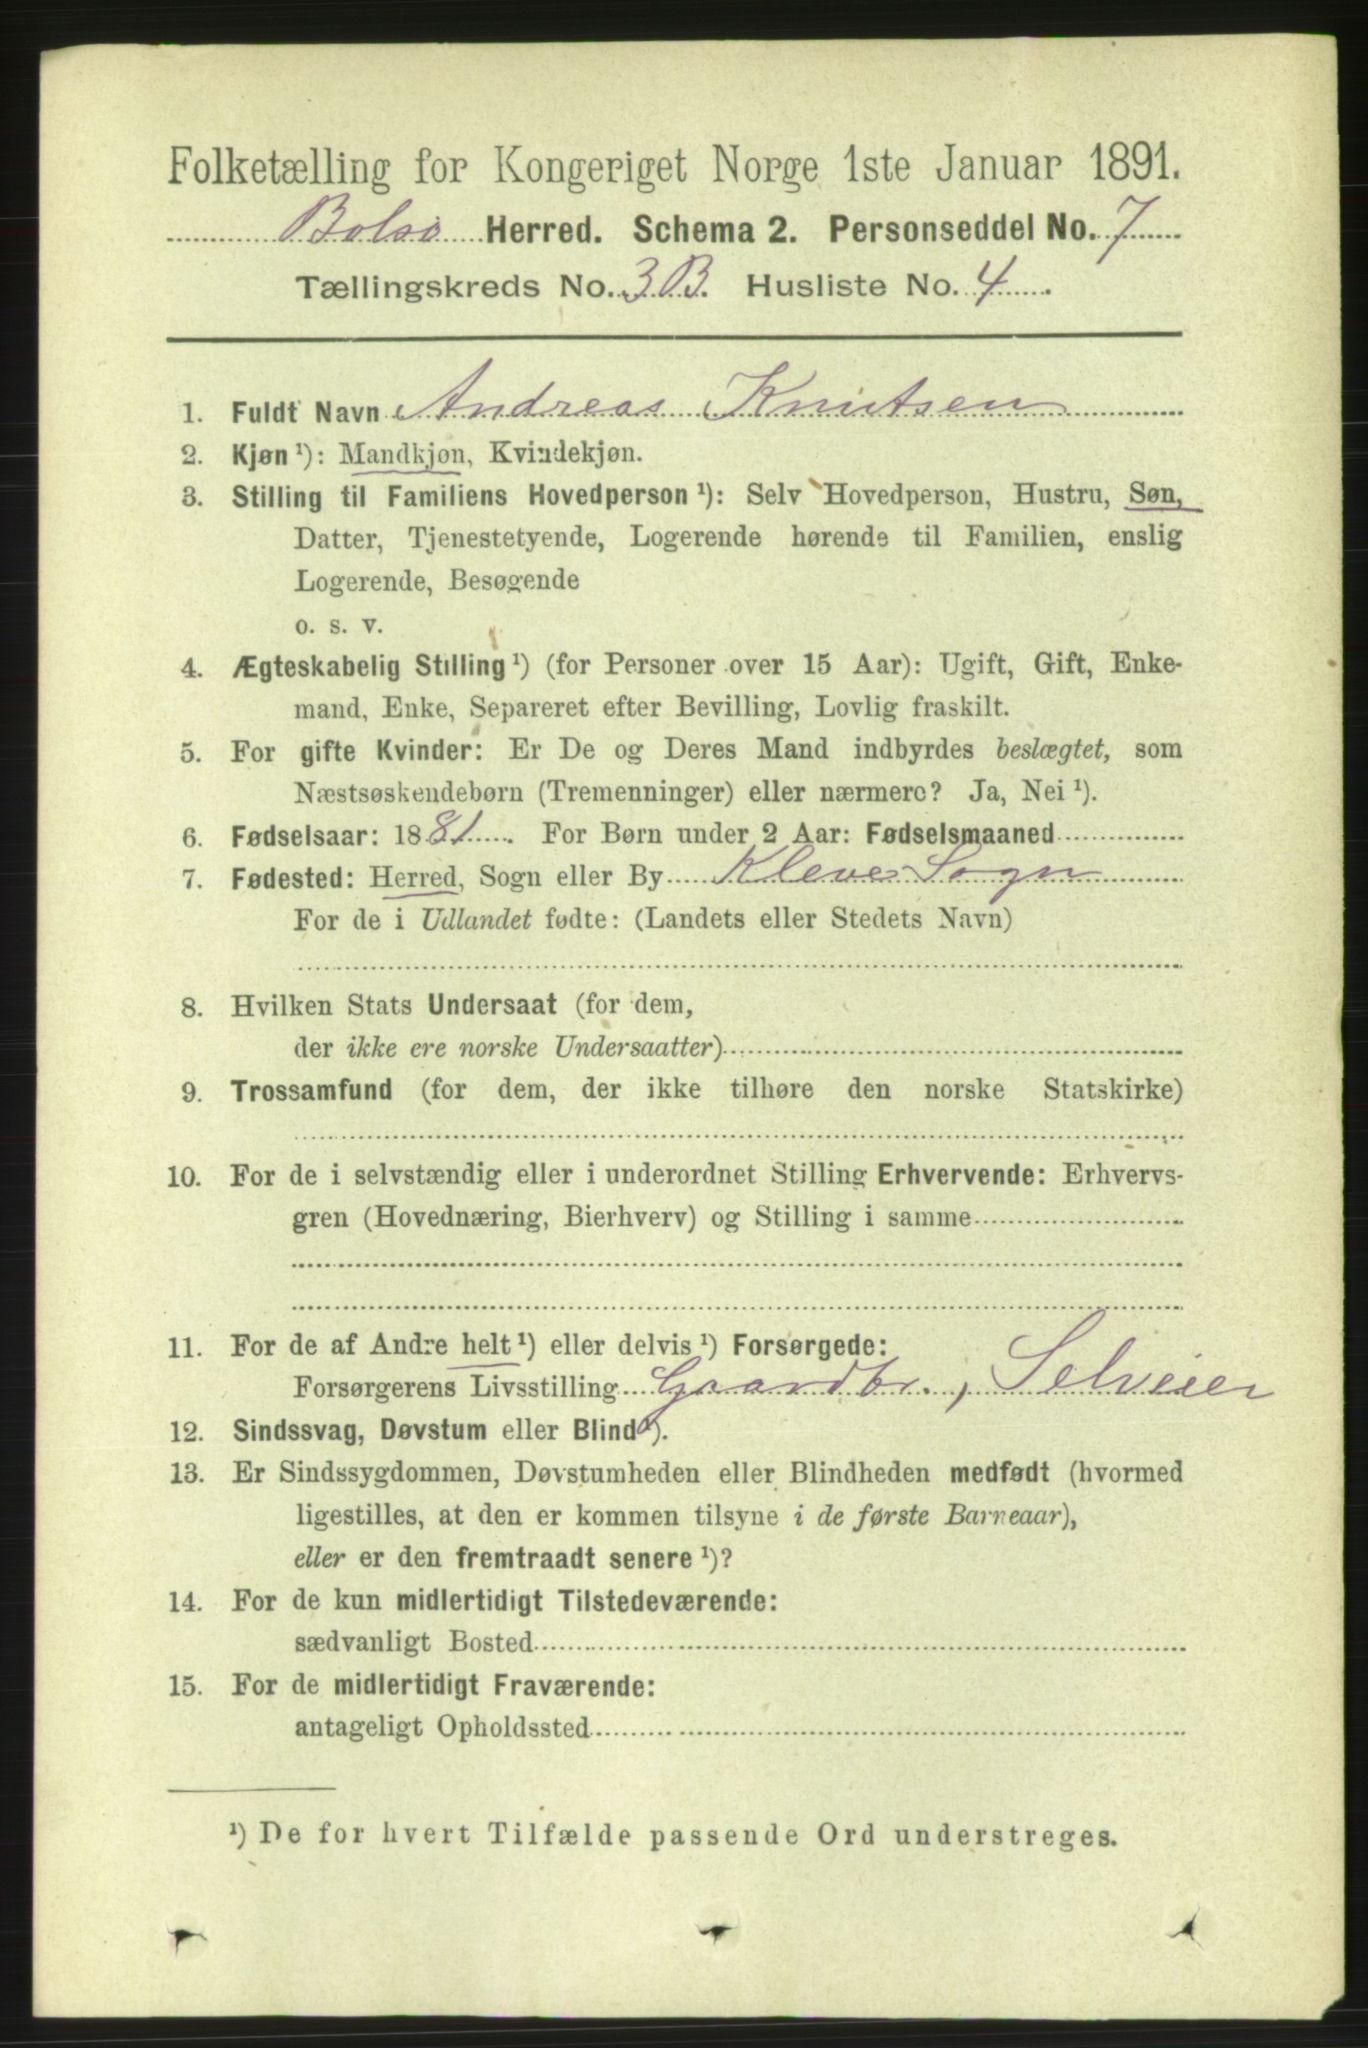 Folketælling for Kongeriget Norge 1ste Januar 1891.
Bolsø Herred. Schema 2. Personseddel No. 7
Tællingskreds No. 3 B. Husliste No. 4
1. Fuldt Navn Andreas Knutsen
2. Kjøn ¹): Mandkjøn, Kvindekjøn.
3. Stilling til Familiens Hovedperson ¹): Selv Hovedperson, Hustru, Søn,
Datter, Tjenestetyende, Logerende hørende til Familien, enslig
Logerende, Besøgende
o. s. v.
4. Ægteskabelig Stilling ¹) (for Personer over 15 Aar): Ugift, Gift, Enke-
mand, Enke, Separeret efter Bevilling, Lovlig fraskilt.
5. For gifte Kvinder: Er De og Deres Mand indbyrdes beslægtet, som
Næstsøskendebørn (Tremenninger) eller nærmere? Ja, Nei ¹).
6. Fødselsaar: 1881. For Børn under 2 Aar: Fødselsmaaned
7. Fødested: Herred, Sogn eller By Kleve Sogn
For de i Udlandet fødte: (Landets eller Stedets Navn)
8. Hvilken Stats Undersaat (for dem,
der ikke ere norske Undersaatter)
9. Trossamfund (for dem, der ikke tilhøre den norske Statskirke)
10. For de i selvstændig eller i underordnet Stilling Erhvervende: Erhvervs-
gren (Hovednæring, Bierhverv) og Stilling i samme
11. For de af Andre helt ¹) eller delvis ¹) Forsørgede:
Forsørgerens Livsstilling Gaardbr., Selveier
12. Sindssvag, Døvstum eller Blind ¹).
13. Er Sindssygdommen, Døvstumheden eller Blindheden medfødt (hvormed
ligestilles, at den er kommen tilsyne i de første Barneaar),
eller er den fremtraadt senere ¹)?
14. For de kun midlertidigt Tilstedeværende:
sædvanligt Bosted
15. For de midlertidigt Fraværende:
antageligt Opholdssted
¹) De for hvert Tilfælde passende Ord understreges.